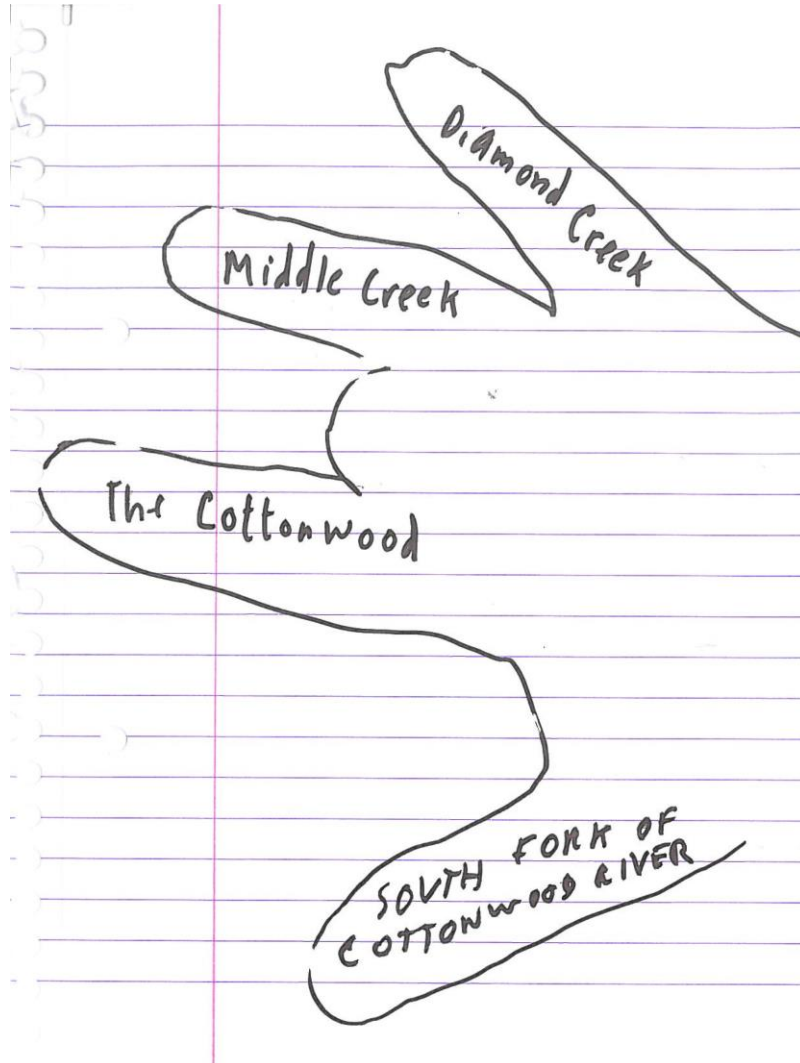 Diamond Creek
Middle Creek
The Cottonwood
SOUTH FORK OF
COTTONWOOD RIVER